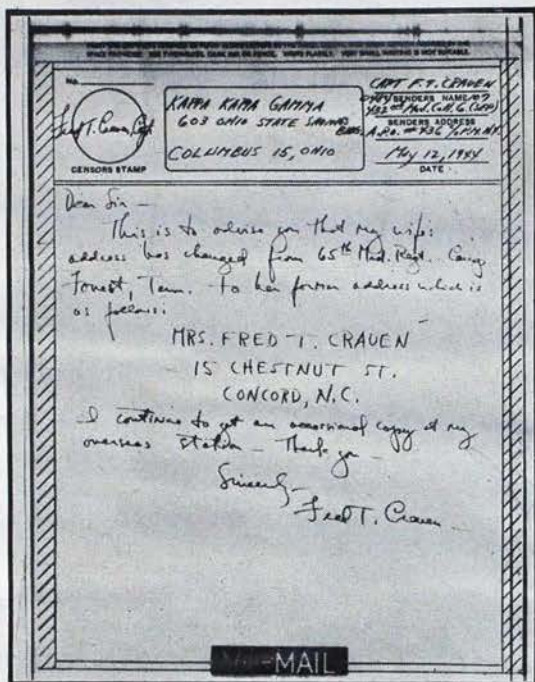 No.
Fred T. Craven, Capt
CENSORS STAMP
KAPPA KAPPA GAMMA
603 OHIO STATE SAVINGS
BLDG.
COLUMBUS 15, OHIO
CAPT F.T. CRAVEN
SENDERS NAME
SENDERS ADDRESS
A.P.O. # 436 % P.M. N.Y.
May 12, 1944
DATE
Dear Sir —
This is to advise you that my wife's
address has changed from 65th Med. Regt. Camp
Forrest, Tenn. to her former address which is
as follows:
MRS. FRED T. CRAVEN
15 CHESTNUT ST.
CONCORD, N.C.
I continue to get an occasional copy at my
overseas station — Thank you —
Sincerely —
Fred T. Craven
V···—MAIL